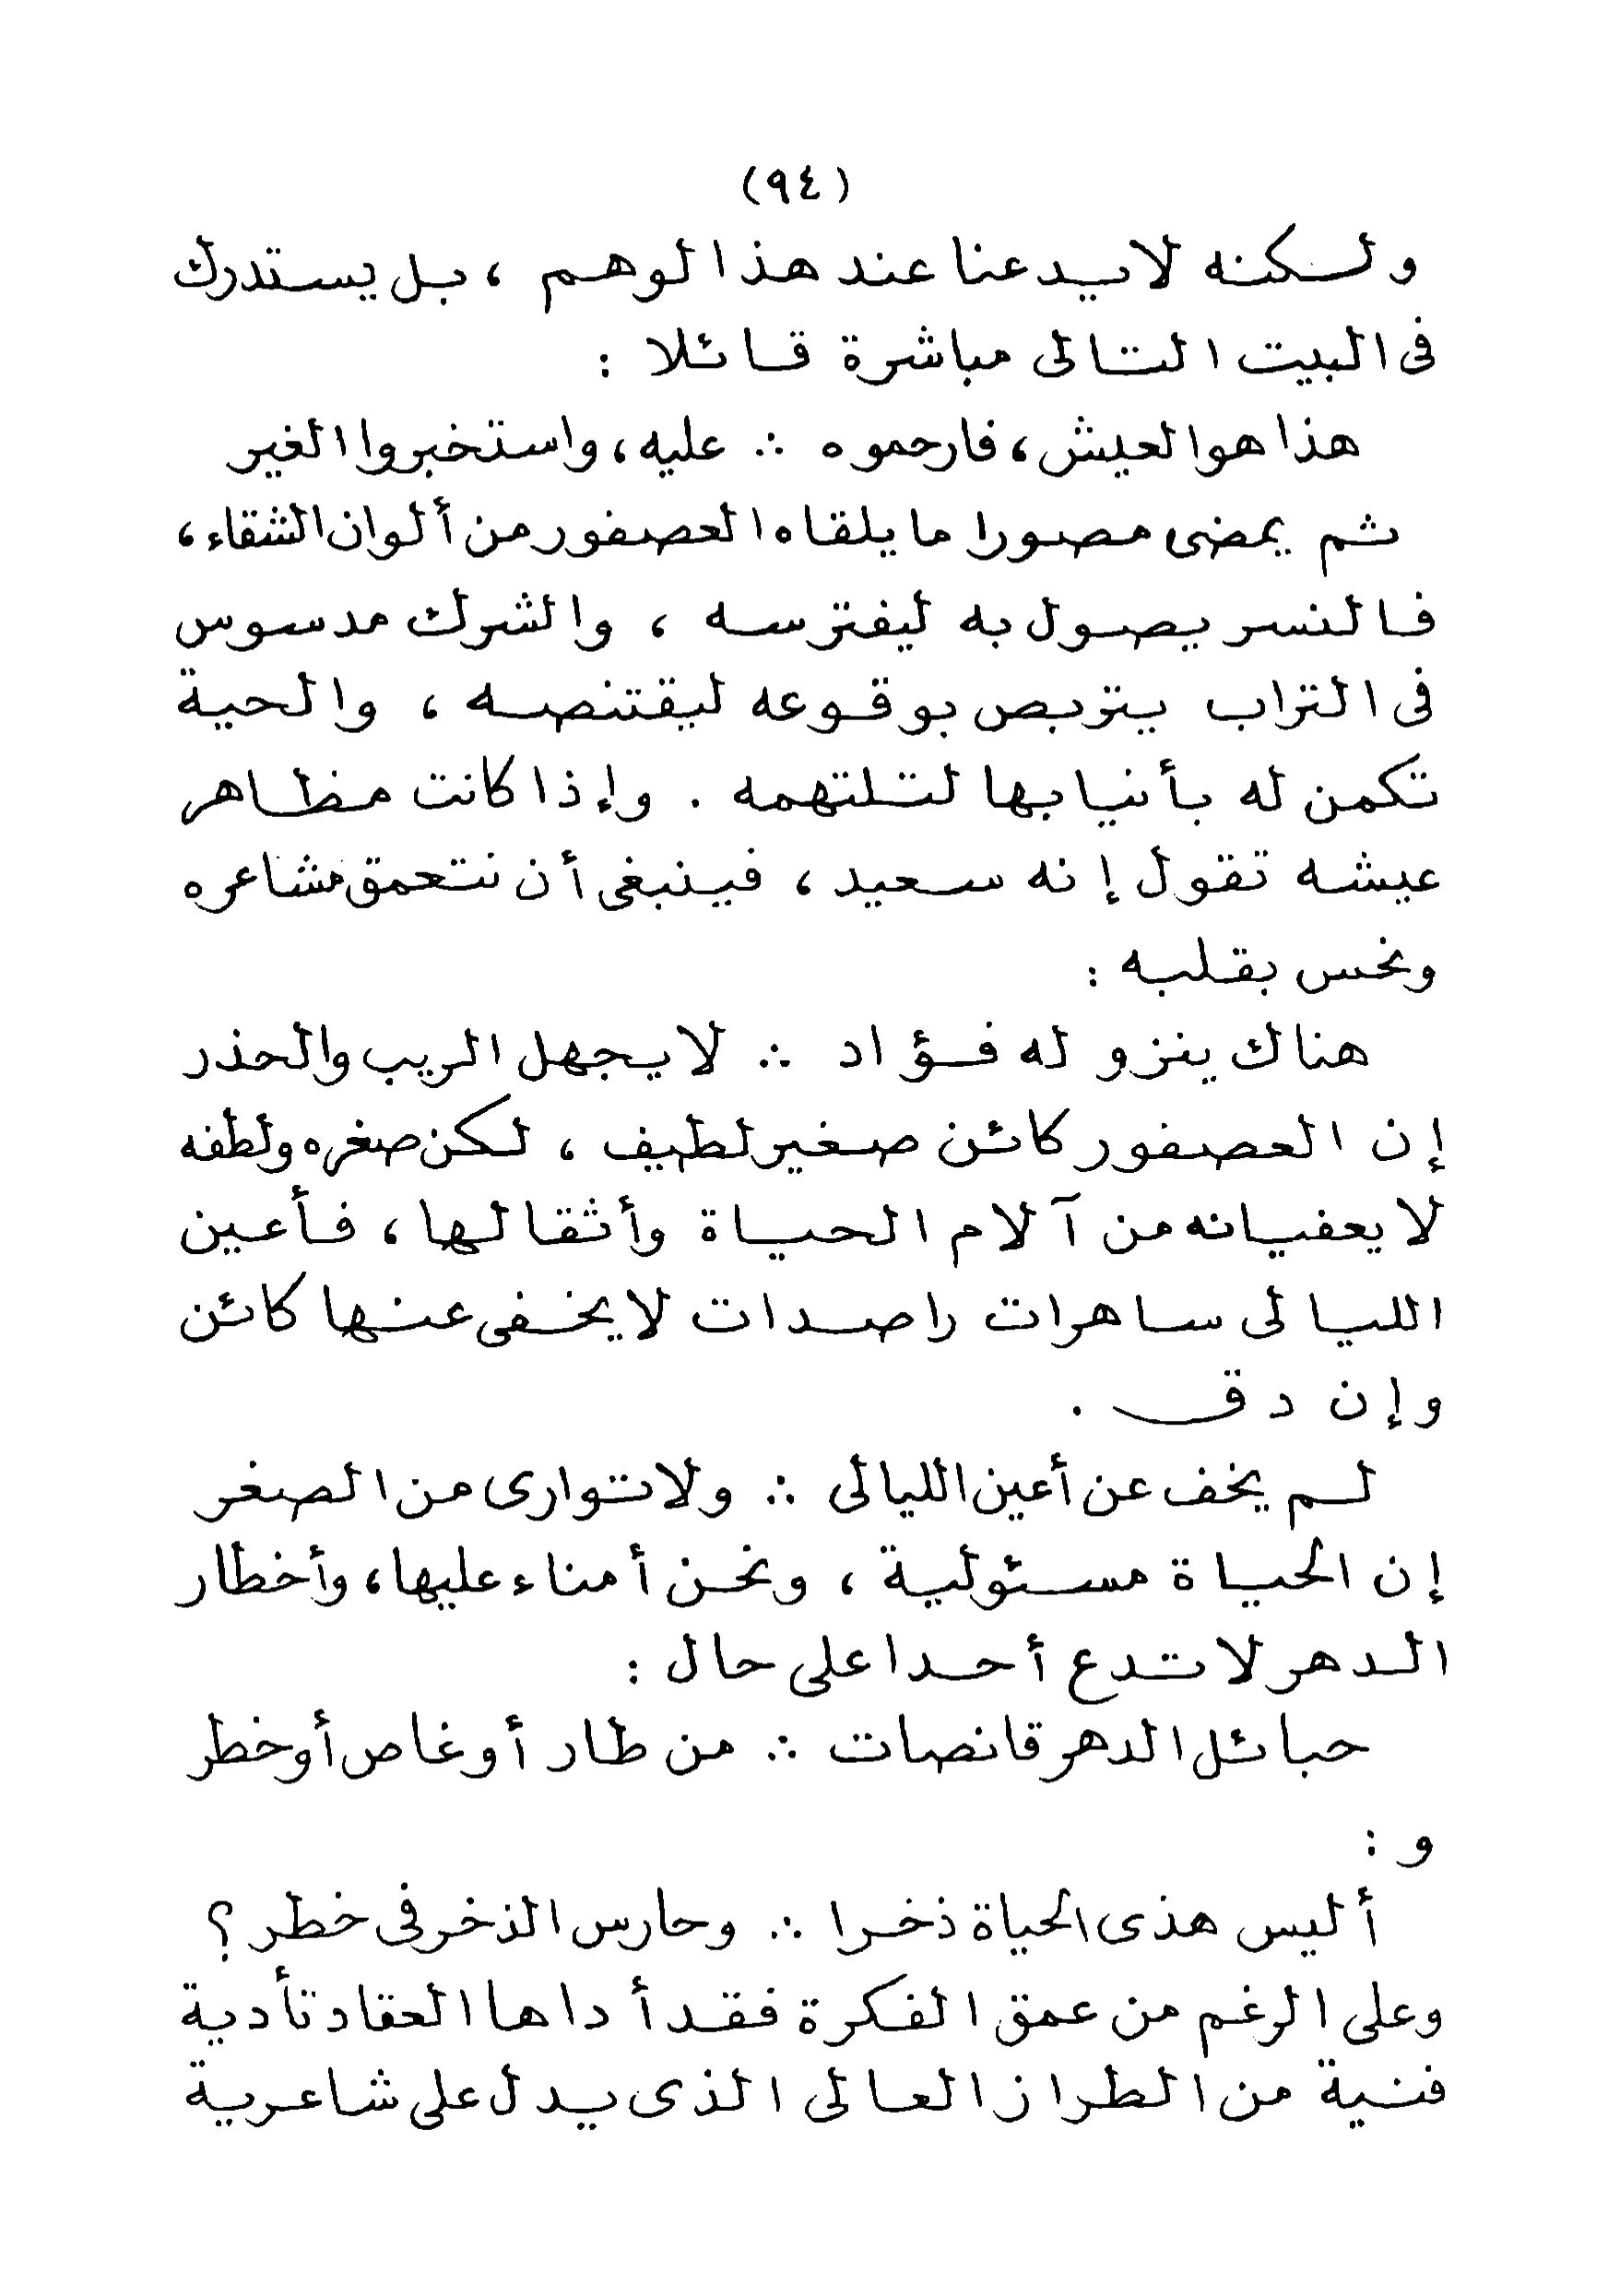 (٩٤)
ولكنه لا يدعنا عند هذا لوهم ، بل يستدرك
فى البيت التالى مباشرة قائلا :
هذا هو العيش، فارحموه ∴ عليه، واستخبروا الغير
ثم يمضى مصورا ما يلقاه العصفور من ألوان الشقاء،
فالنسر يصول به ليفترسه ، والشرك مدسوس
فى التراب يتربص بوقوعه ليقتنصه ، والحية
تكمن له بأنيابها لتلتهمه . وإذا كانت مظاهر
عيشه تقول إنه سعيد ، فينبغى أن نتعمق مشاعره
ونحس بقلبه :
هناك ينزو له فؤاد ∴ لا يجهل الريب والحذر
إن العصفور كائن صغير لطيف ، لكن صغره ولطفه
لا يعفيانه من آلام الحياة وأثقالها ، فأعين
الليالى ساهرات راصدات لا يخفى عنها كائن
وإن دق .
لم يخف عن أعين الليالى ∴ ولا توارى من الصغر
إن الحياة مسئولية ، ونحن أمناء عليها، وأخطار
الدهر لا تدع أحدا على حال :
حبائل الدهر قانصات ∴ من طار أو غاص أو خطر
و :
أليس هذى الحياة ذخرا ∴ وحارس الذخر فى خطر ؟
وعلى الرغم من عمق الفكرة فقد أداها العقاد تأدية
فنية من الطراز العالى الذى يدل على شاعرية